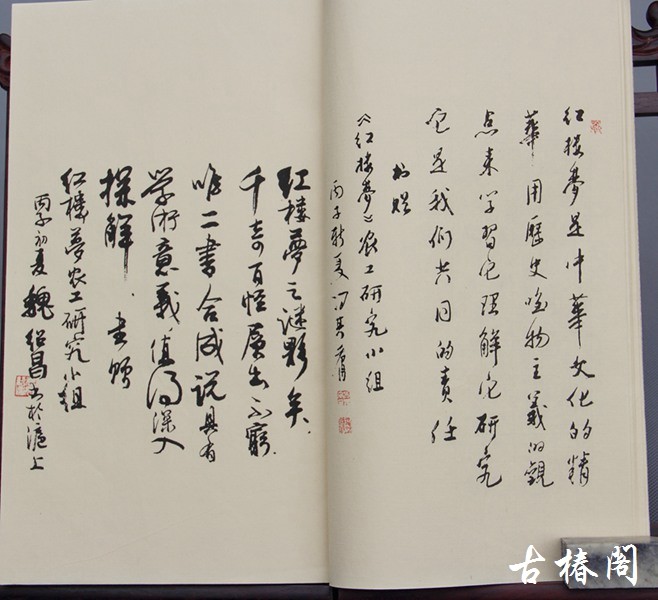 红楼梦是中華文化的精
華用歷史唯物主義的觀
点来学習它理解它研究
它是我们共同的責任
书赠
《红楼梦》农工研究小组
丙子新夏冯其庸
红楼夢之謎夥矣.
千奇百怪层出不窮.
唯二書合成説具有
学術意義值得深入
探解.书贈
红楼夢农工研究小组
丙子初夏魏绍昌书於滬上
古椿阁